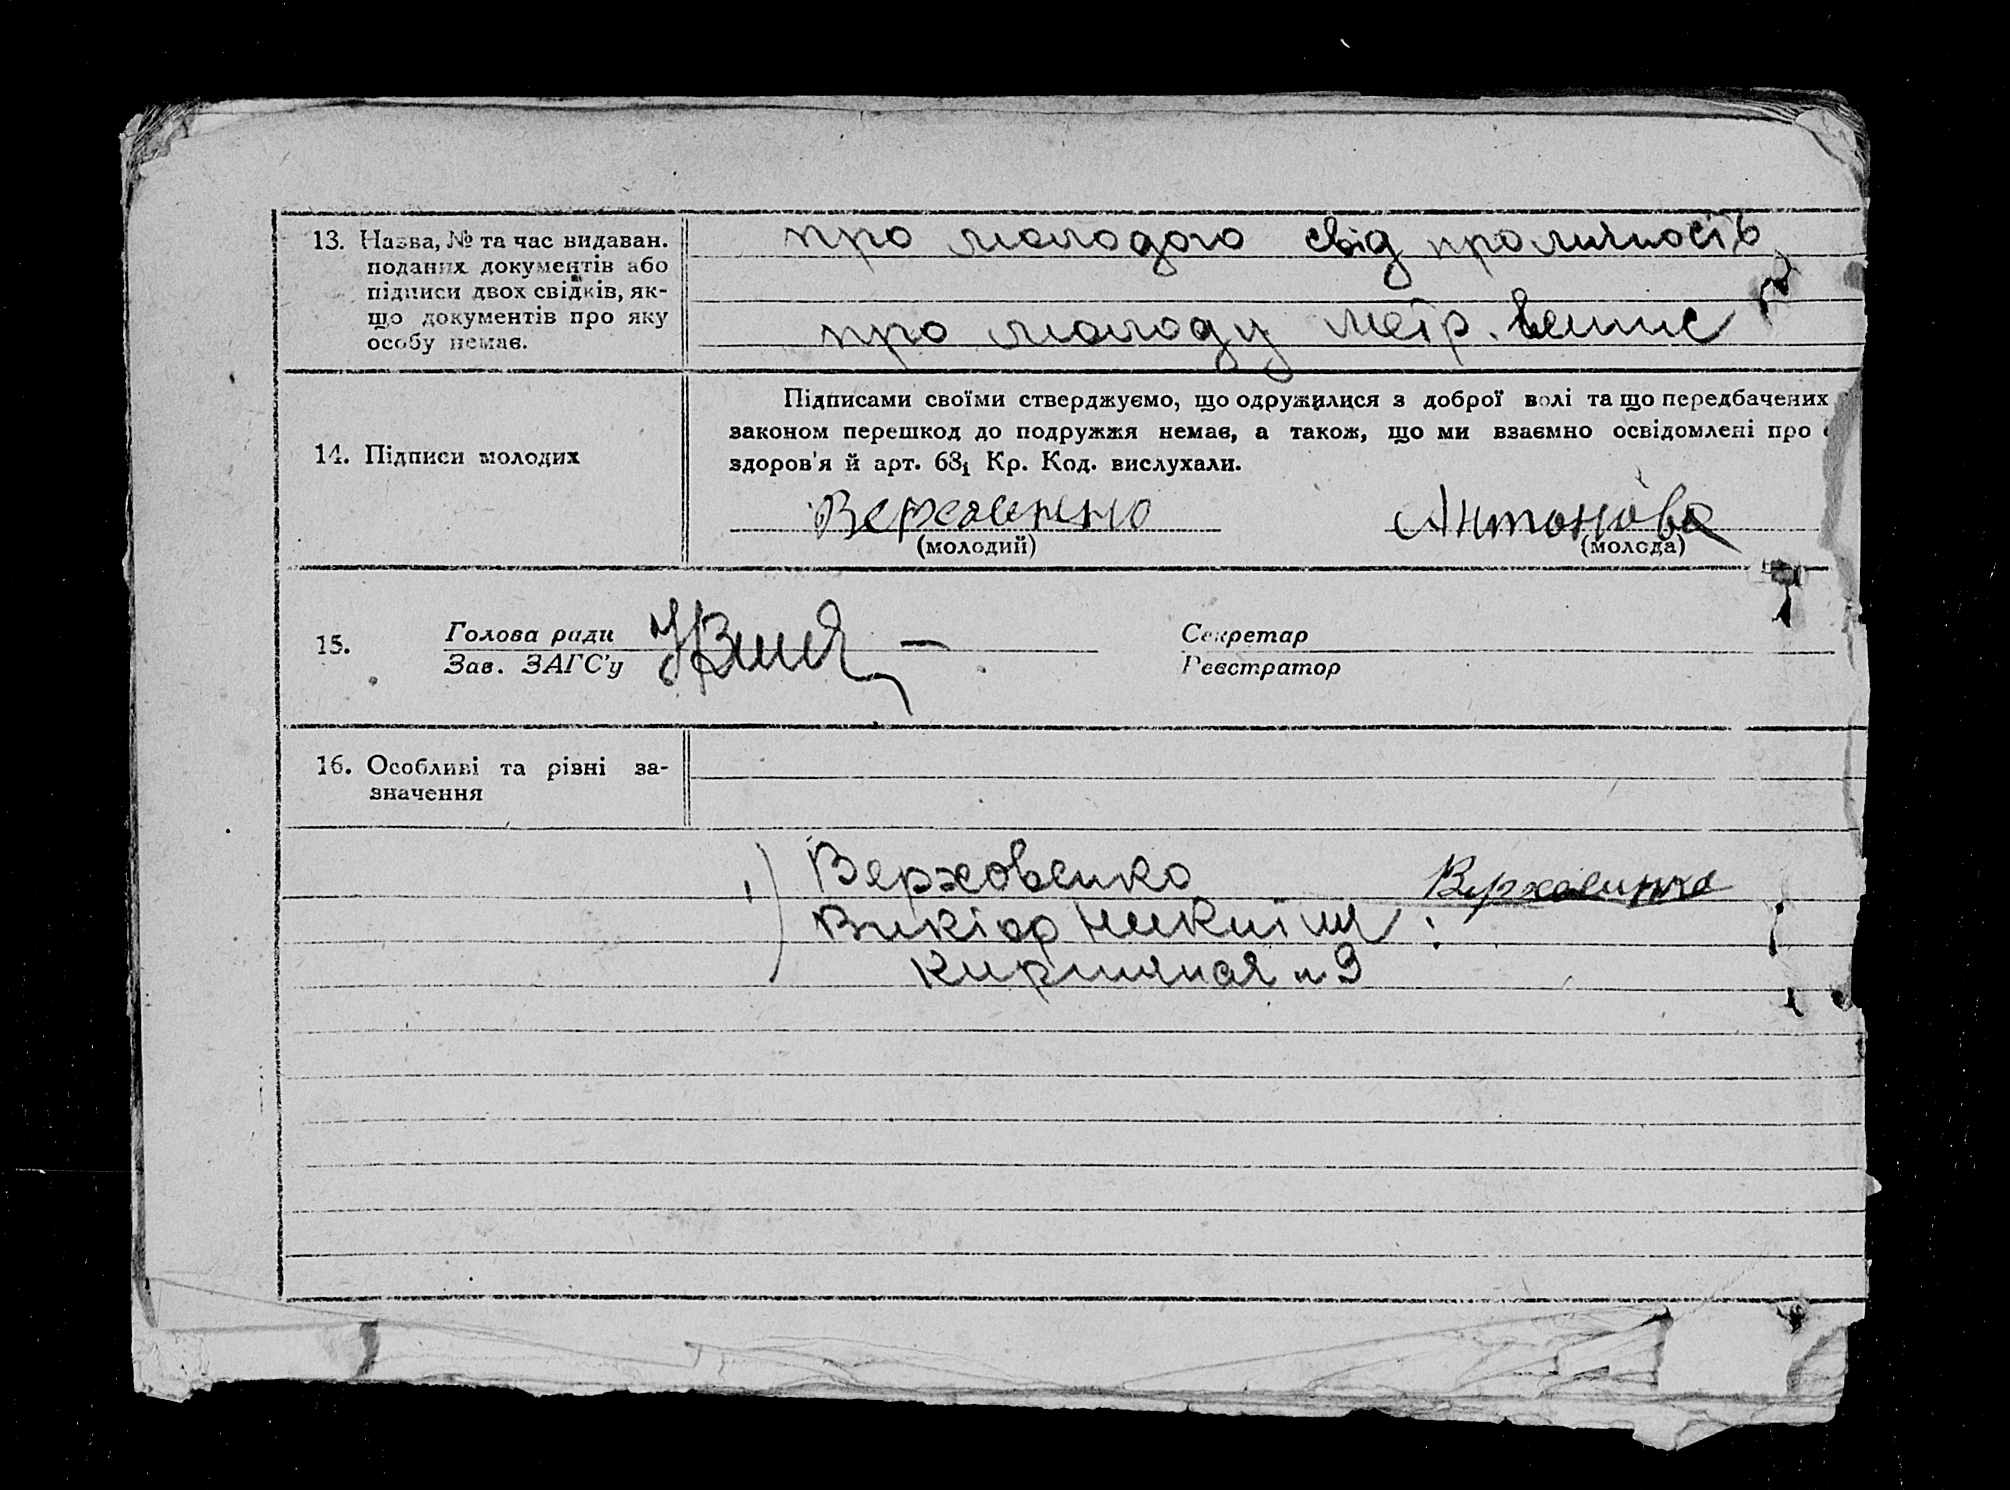 13. Назва, № та час видаван.
поданих документів або
підписи двох свідків, як-
що документів про яку
особу немає.
про молодого свід про личность
про молоду метр. випис
14. Підписи молодих
Підписами своїми стверджуємо, що одружилися з доброї волі та що передбачених
законом перешкод до подружжя немає, а також, що ми взаємно освідомлені про
здоров'я й арт. 68₁ Кр. Код. вислухали.
Верховенко Антонова
(молодий) (молода)
15. Голова ради
Зав. ЗАГС'у
Секретар
Реєстратор
16. Особливі та рівні за-
значення
1) Верховенко Верховенко
Віктор
Кирпичная № 9